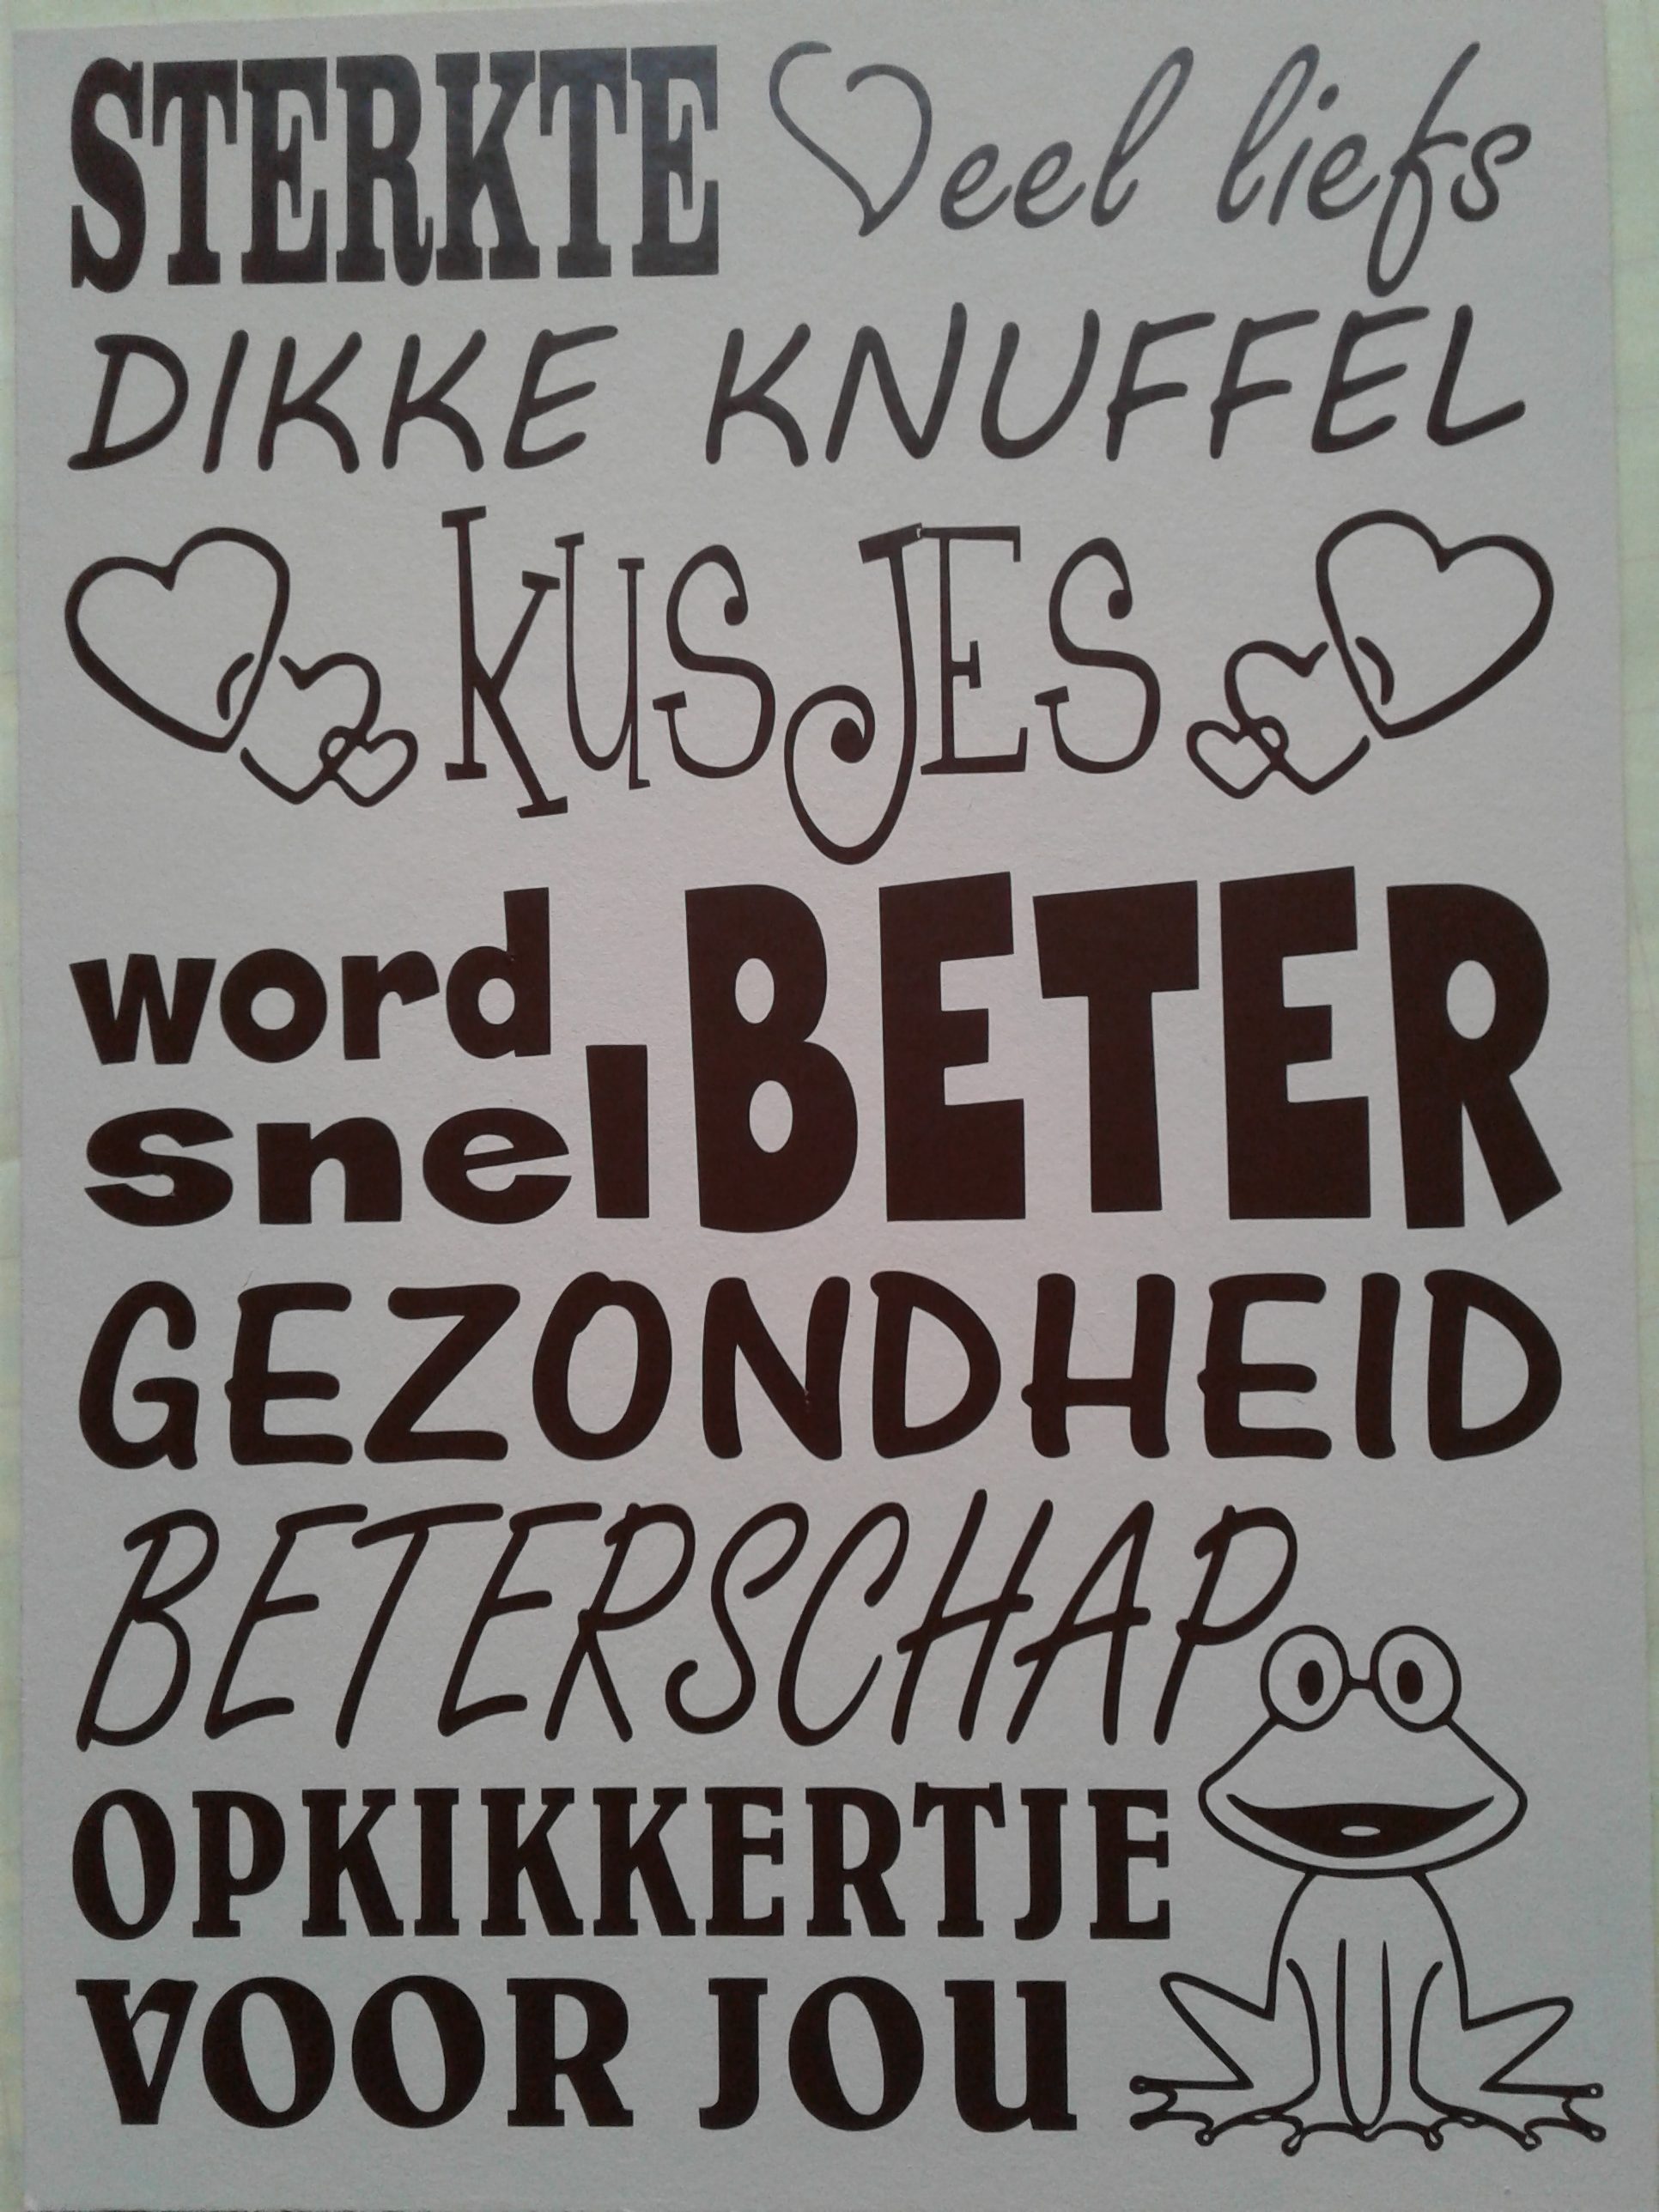 STERKTE Veel liefs
DIKKE KNUFFEL
KUSJES
word
snel BETER
GEZONDHEID
BETERSCHAP
OPKIKKERTJE
VOOR JOU